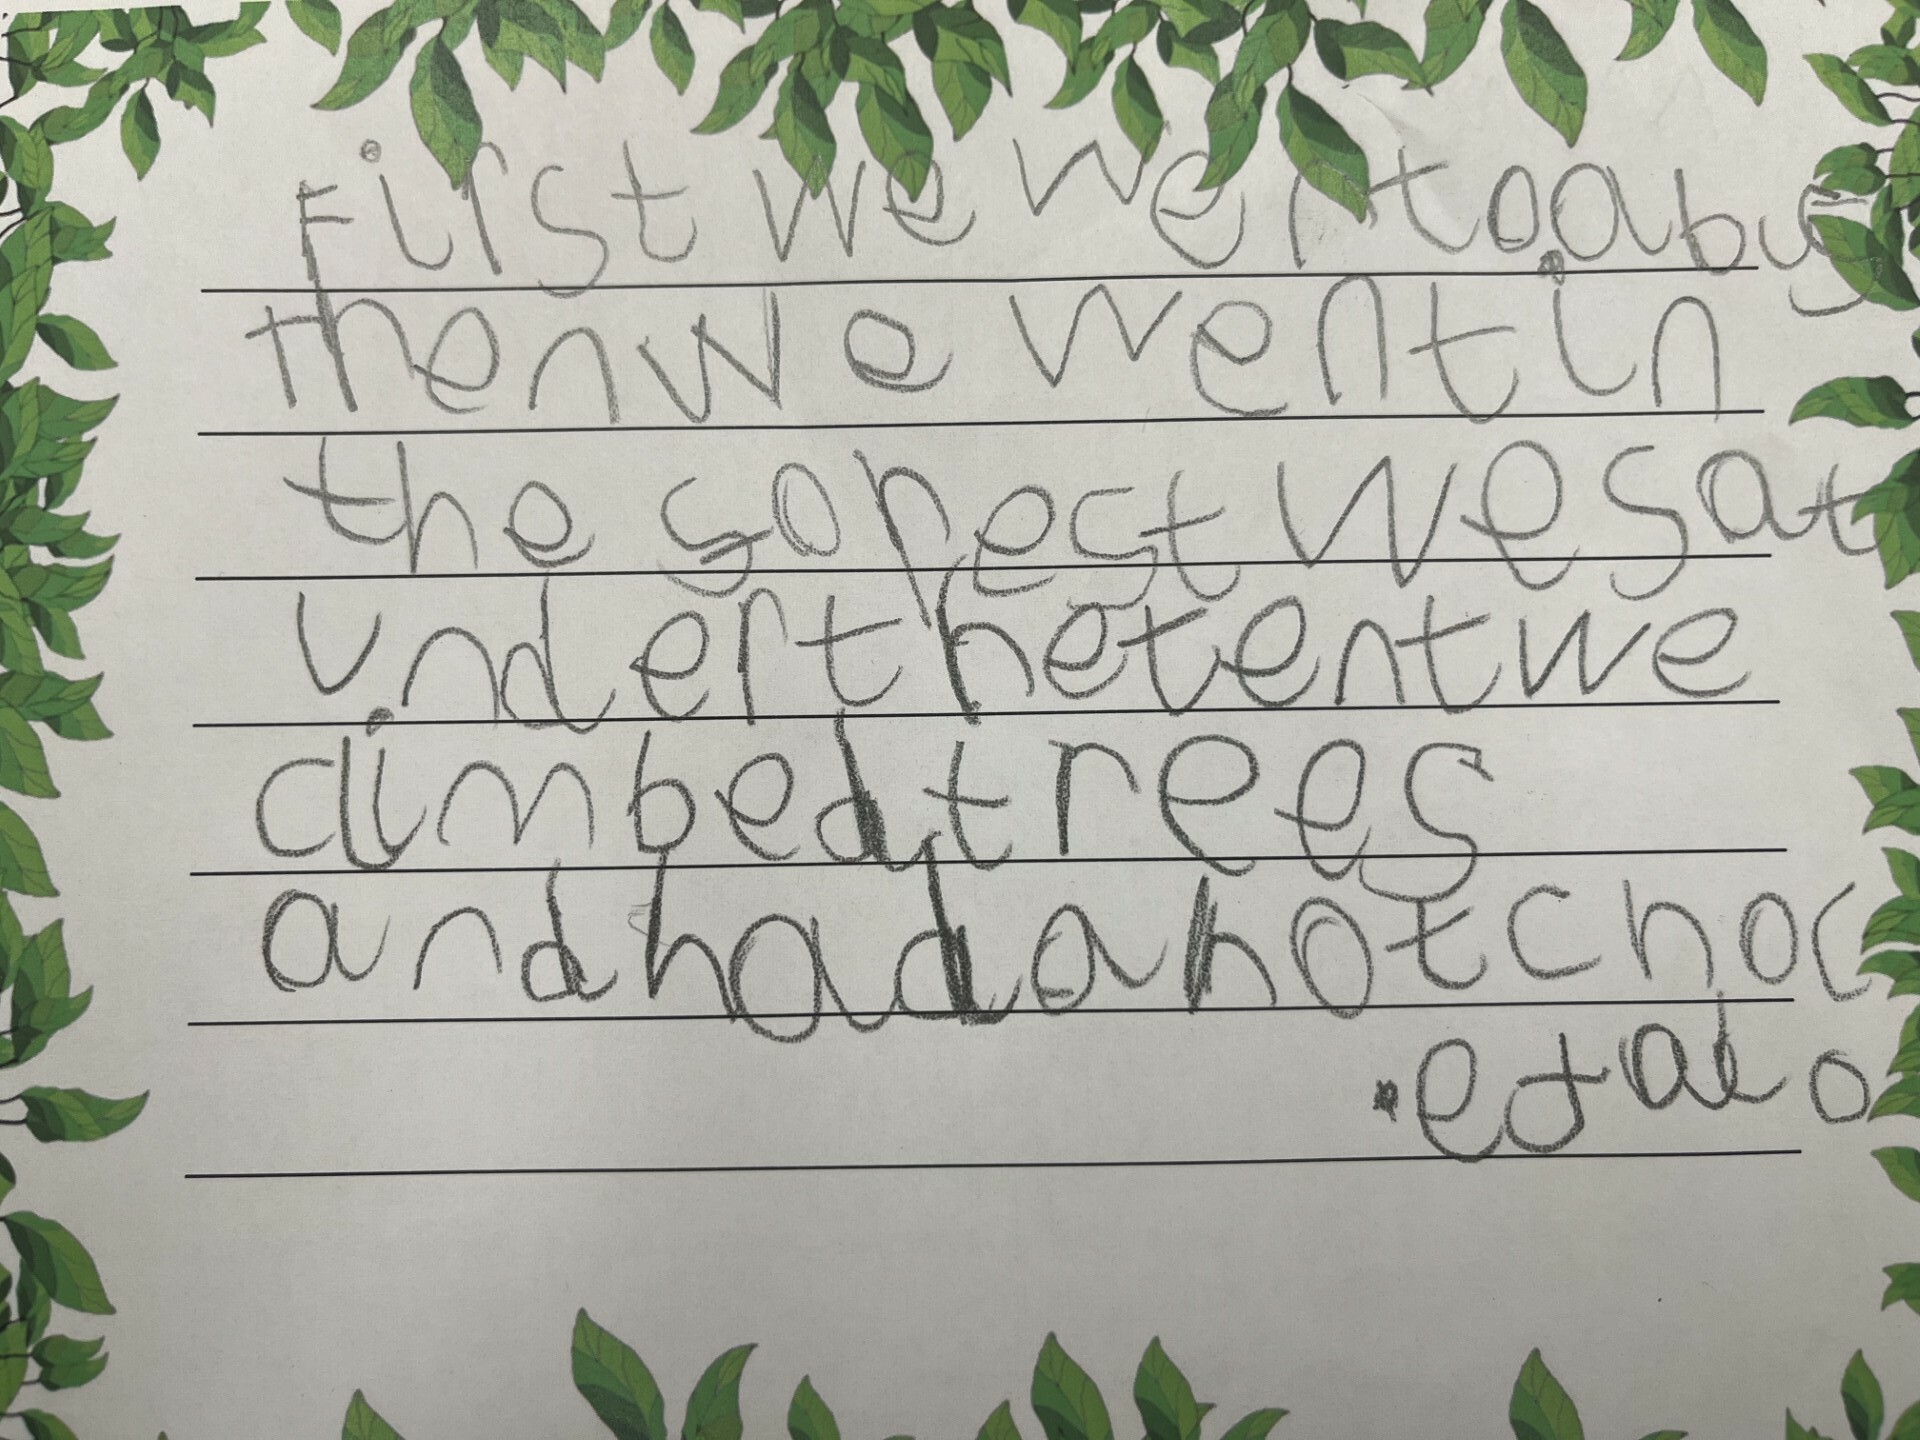 First we went to a bus
Then we went in
the forest we sat
under the tent we
climbed trees
and had a hot choc
.etalo